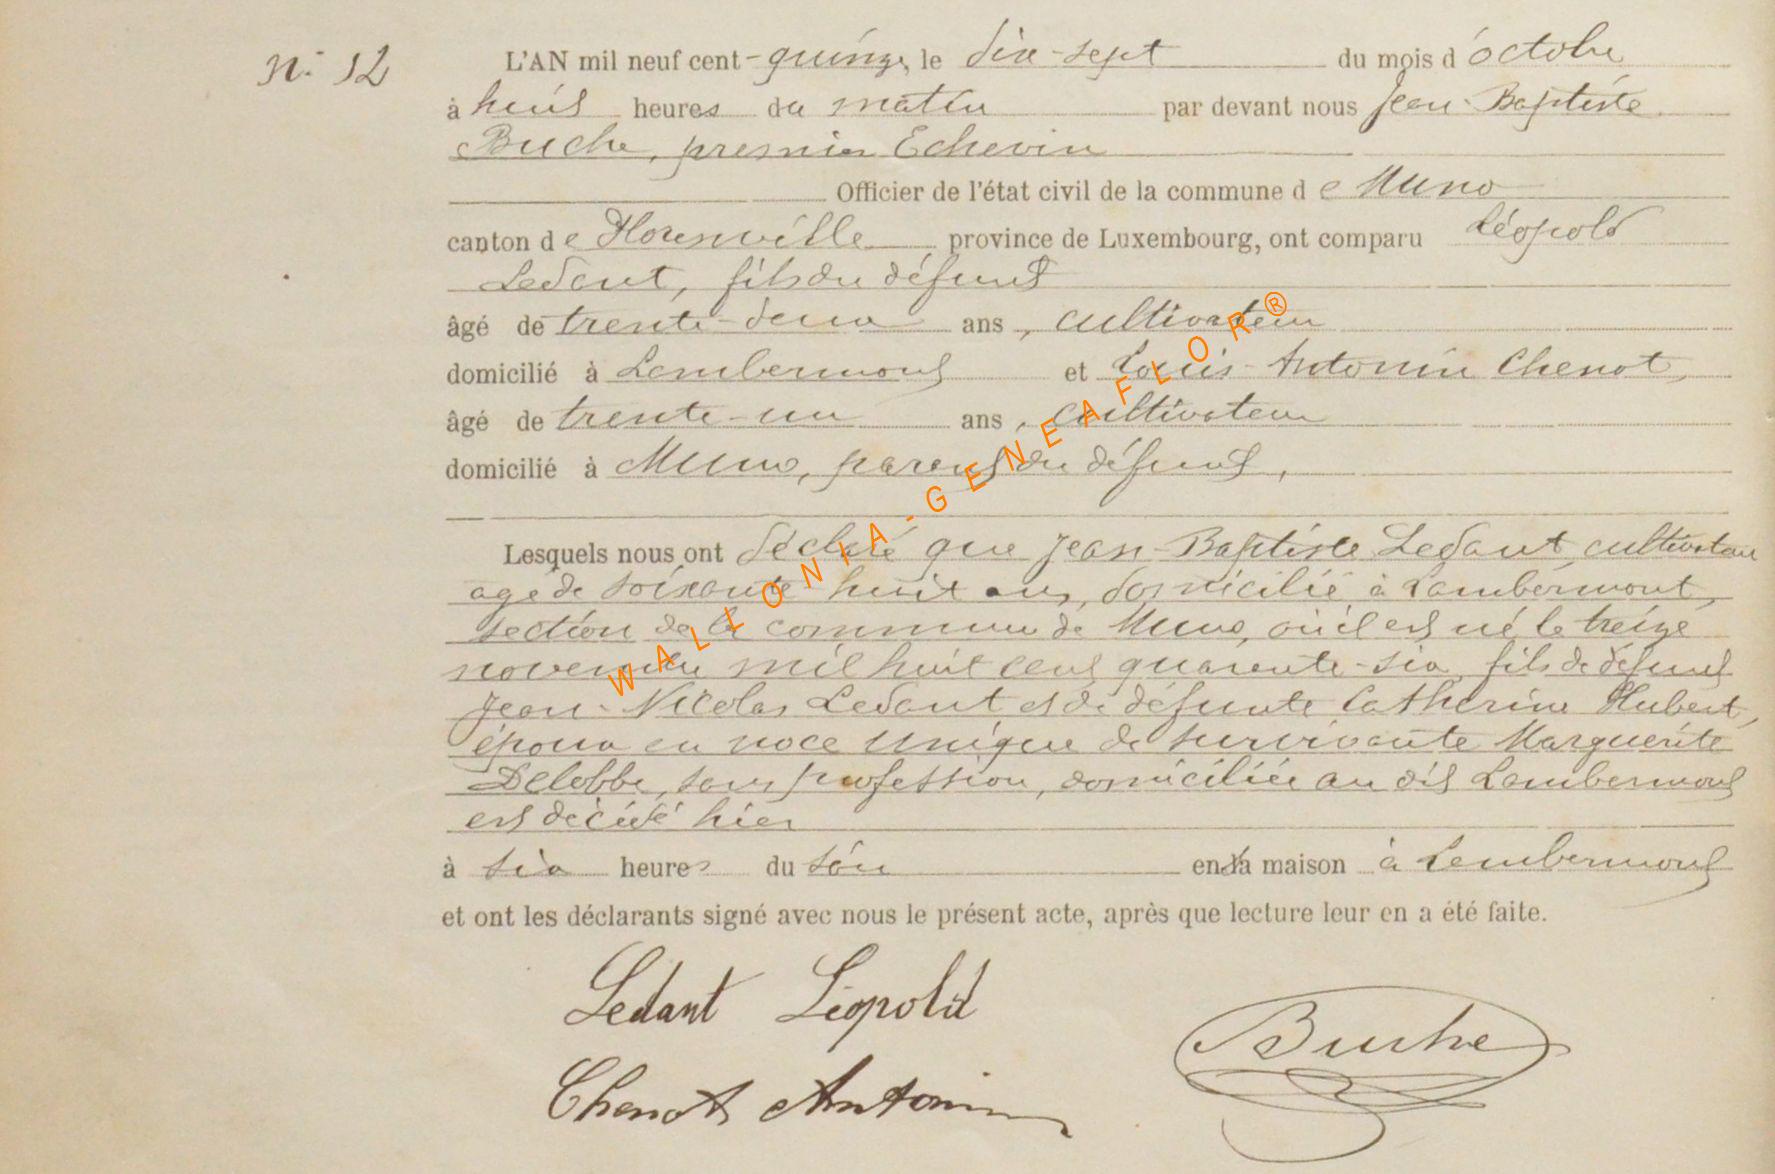 n° 12
L'AN mil neuf cent-quinze, le dix-sept du mois d'octobre
à huit heures du matin par devant nous Jean-Baptiste
Buche, premier Echevin
Officier de l'état civil de la commune de Muno
canton de Florenville, province de Luxembourg, ont comparu Léopold
Ledant, fils du défunt
âgé de trente-deux ans, cultivateur
domicilié à Lambermont et Louis-Antonin Chenot,
âgé de trente-un ans, cultivateur
domicilié à Muno, parent du défunt,
Lesquels nous ont déclaré que Jean-Baptiste Ledant, cultivateur
agé de soixante huit ans, domicilié à Lambermont,
section de la commune de Muno, où il est né le treize
novembre mil huit cent quarante-six, fils de défunt
Jean-Nicolas Ledant et de défunte Catherine Hubert,
époux en noce unique de survivante Marguerite
Delobbe, sans profession, domiciliée au dit Lambermont
est décédé hier
à six heures du soir en sa maison à Lambermont
et ont les déclarants signé avec nous le présent acte, après que lecture leur en a été faite.
Ledant Léopold
Buche
Chenot Antonin
WALLONIA-GENEAFLOR®